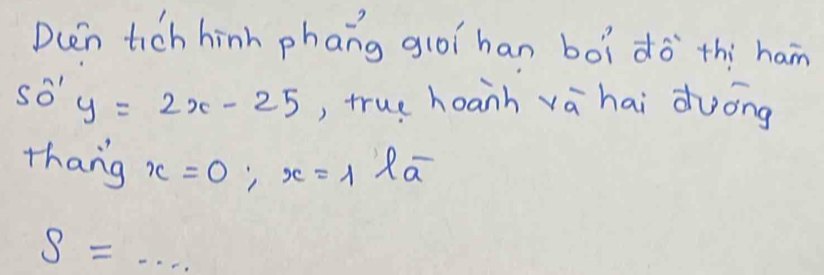 Diện tích hình phẳng giới hạn bởi đồ thị hàm
số y = 2x - 25, trục hoành và hai đường
thẳng x = 0 ; x = 1 là
S = ....